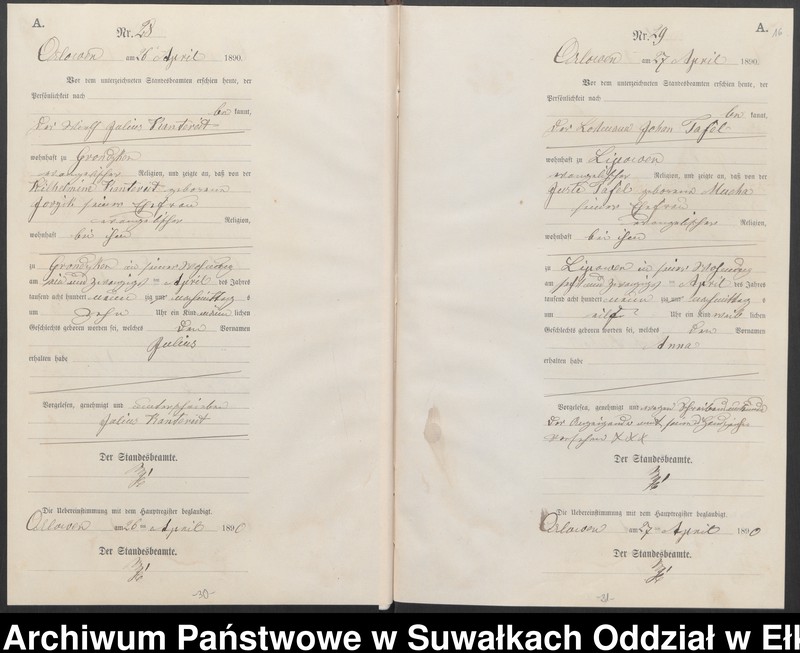 A.
Nr. 28
Orlowen am 26 April 1890.
Vor dem unterzeichneten Standesbeamten erschien heute, der
Persönlichkeit nach
be kannt,
der Julius
wohnhaft zu Grondzken
evangelischer Religion, und zeigte an, daß von der
Wilhelmine geborenen
seiner Ehefrau
evangelischer Religion,
wohnhaft bei ihm
zu Grondzken in seiner Wohnung
am zwanzigsten April des Jahres
tausend acht hundert neunzig zu Nachmittag s
um zehn Uhr ein Kind männlichen
Geschlechts geboren worden sei, welches den Vornamen
Julius
erhalten habe
Vorgelesen, genehmigt und unterschrieben
Julius
Der Standesbeamte.
Die Uebereinstimmung mit dem Hauptregister beglaubigt.
Orlowen am 26 ten April 1890
Der Standesbeamte.
-30-
A. 16
Nr. 29
Orlowen am 27 April 1890.
Vor dem unterzeichneten Standesbeamten erschien heute, der
Persönlichkeit nach
be kannt,
der Losmann Johan Tafel
wohnhaft zu Lipowen
evangelischer Religion, und zeigte an, daß von der
Justa Tafel geborenen Mucha
seiner Ehefrau
evangelischer Religion,
wohnhaft bei ihm
zu Lipowen in seiner Wohnung
am sechs und zwanzigsten April des Jahres
tausend acht hundert neunzig zu Nachmittag s
um elf Uhr ein Kind weiblichen
Geschlechts geboren worden sei, welches den Vornamen
Anna
erhalten habe
Vorgelesen, genehmigt und wegen Schreibensunkunde
der Anzeigende mit seinem Handzeichen
versehen XXX
Der Standesbeamte.
Die Uebereinstimmung mit dem Hauptregister beglaubigt.
Orlowen am 27 ten April 1890
Der Standesbeamte.
-31-
Archiwum Państwowe w Suwałkach Oddział w Ełk